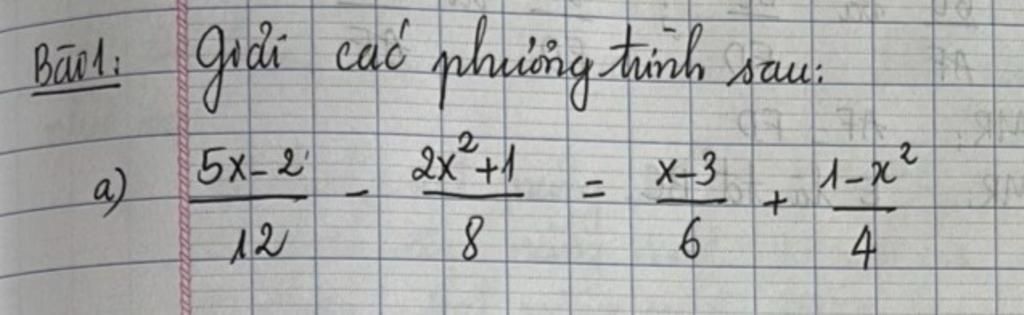 Bài 1: Giải các phương trình sau:
a) (5x-2)/12 - (2x²+1)/8 = (x-3)/6 + (1-x²)/4